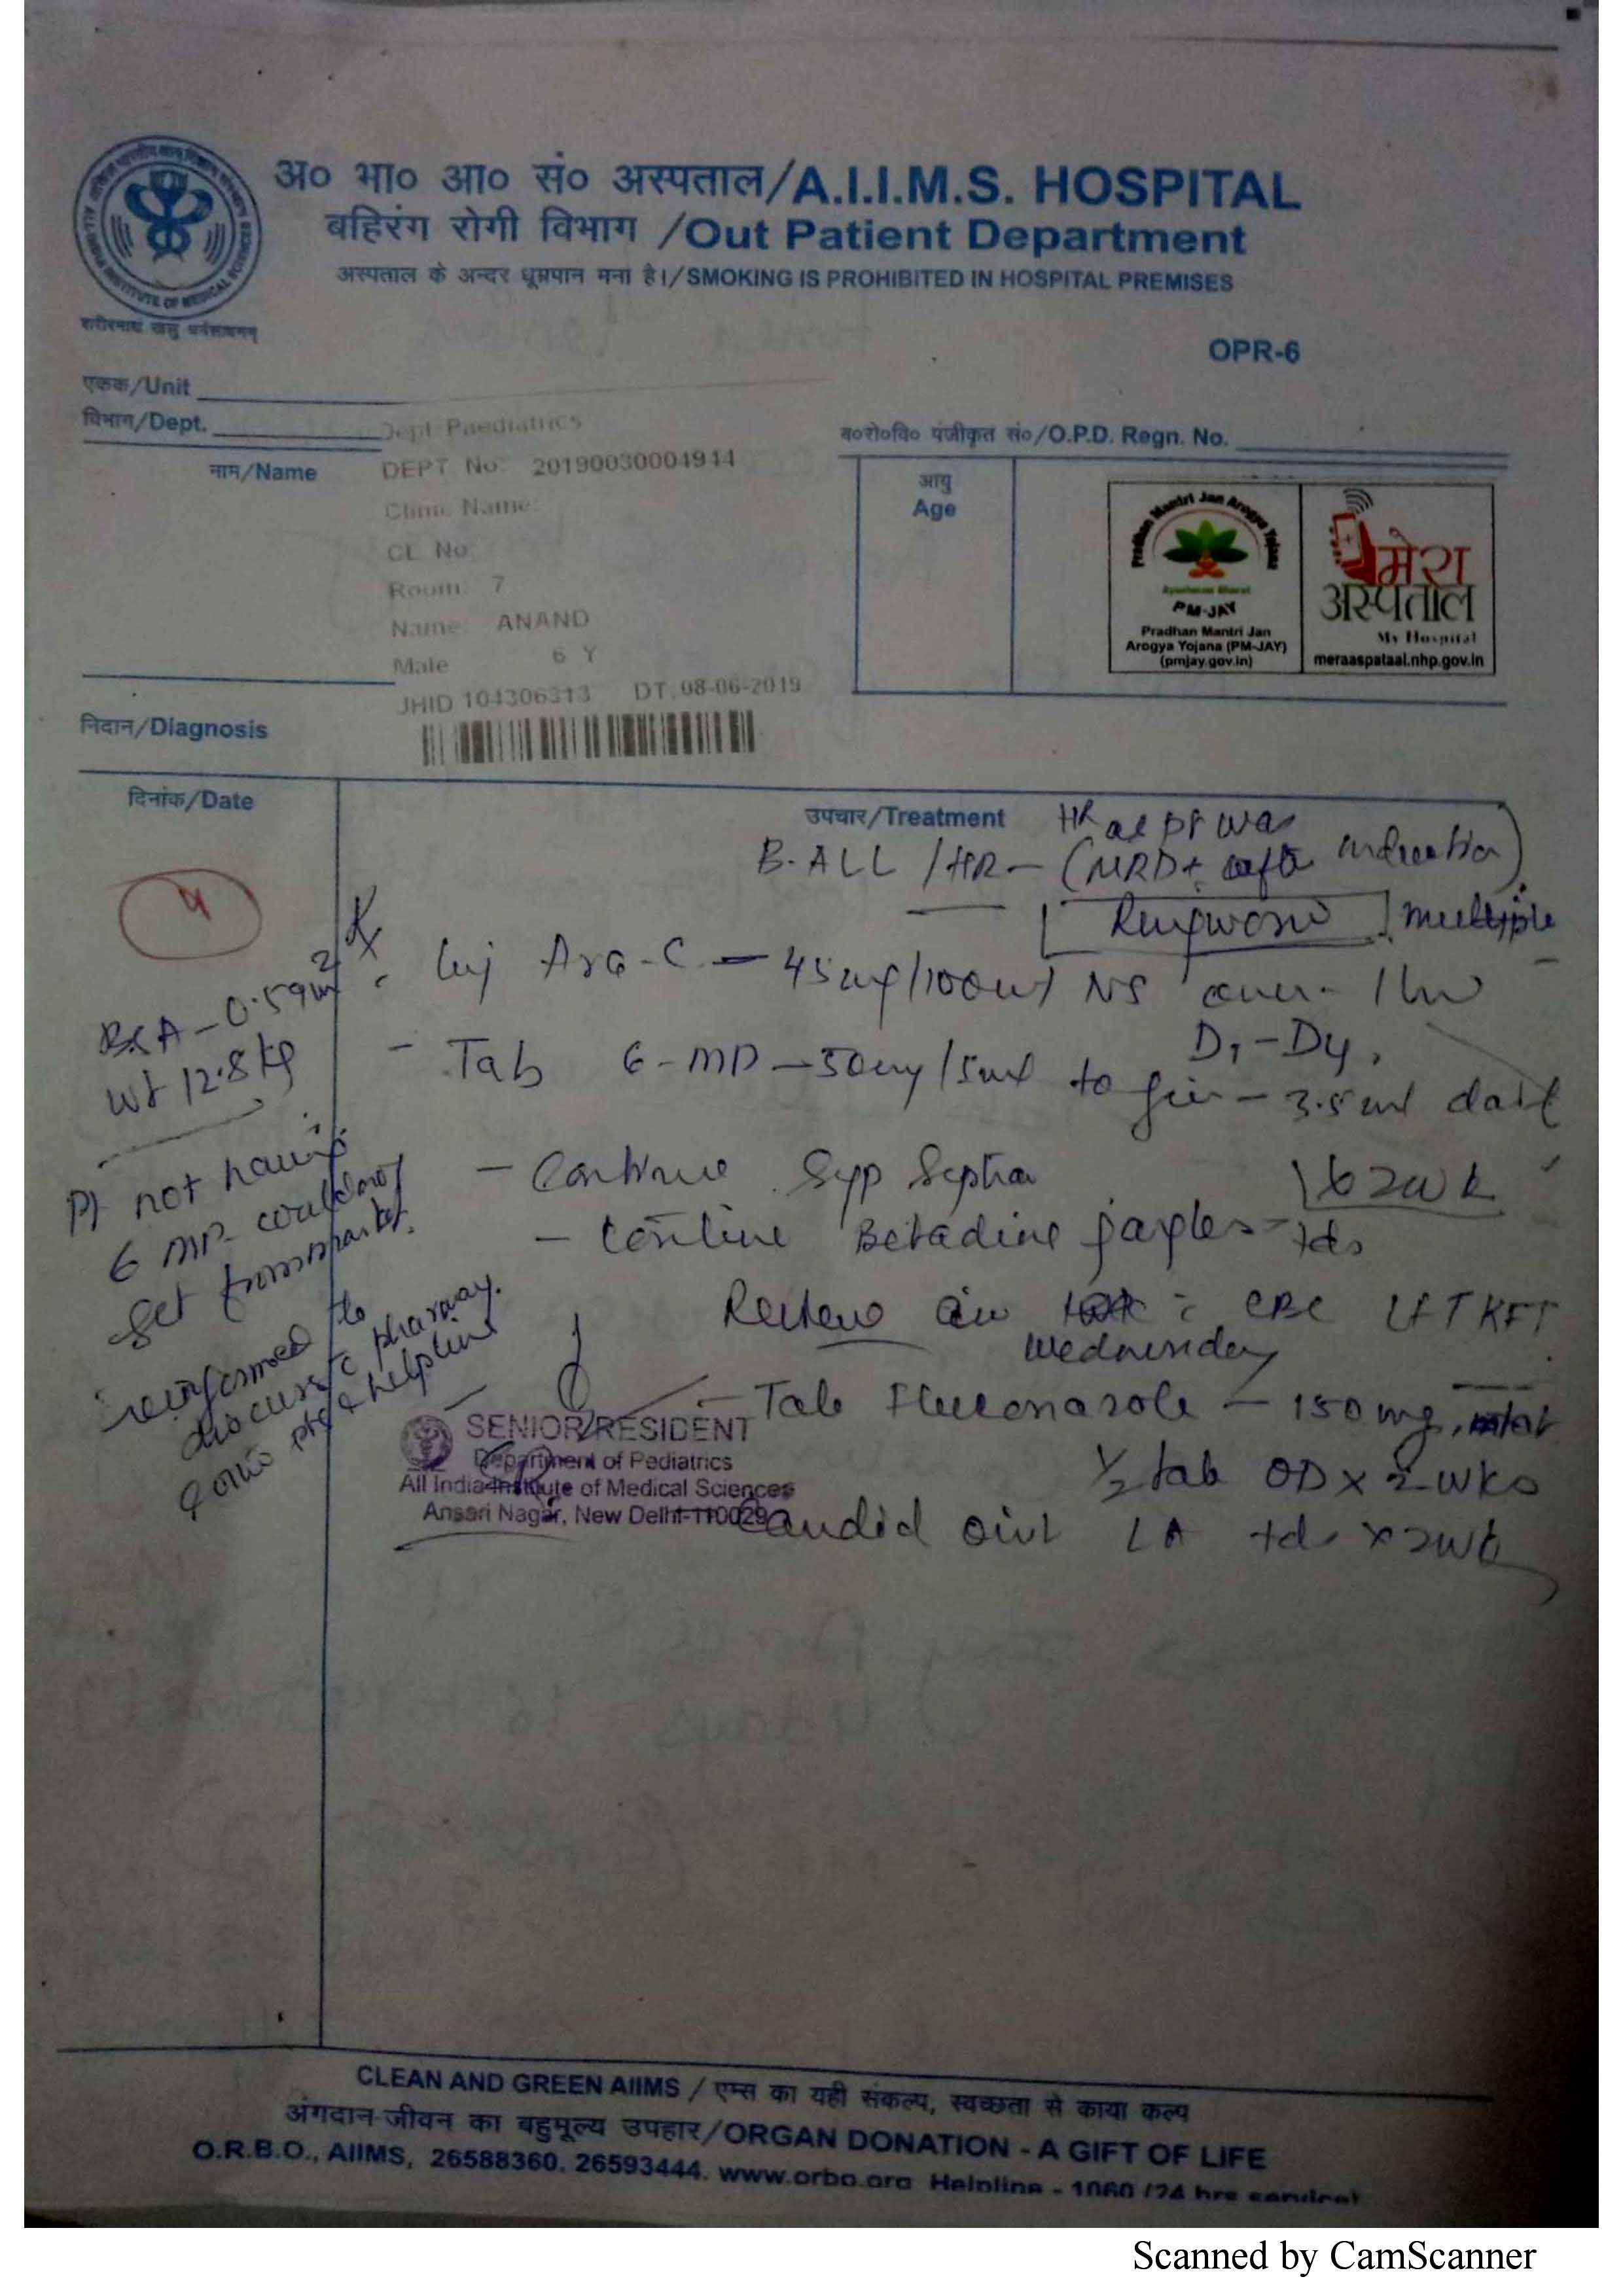 अ० भा० आ० सं० अस्पताल/A.I.I.M.S. HOSPITAL
बहिरंग रोगी विभाग /Out Patient Department
अस्पताल के अन्दर धूम्रपान मना है।/SMOKING IS PROHIBITED IN HOSPITAL PREMISES
OPR-6
एकक/Unit
विभाग/Dept.
Dept Paediatrics
ब०रो०वि० पंजीकृत सं०/O.P.D. Regn. No.
नाम/Name
DEPT. No: 20190030004944
Clinic Name:
CL No
Room: 7
Name: ANAND
Male 6 Y
DT. 08-06-2019
104306313
आयु
Age
Pradhan Mantri Jan Arogya Yojana
PM-JAY
Pradhan Mantri Jan
Arogya Yojana (PM-JAY)
(pmjay.gov.in)
मेरा
अस्पताल
My Hospital
meraaspataal.nhp.gov.in
निदान/Diagnosis
दिनांक/Date
उपचार/Treatment
HR as pt was
B-ALL /HR - (MRD+ after induction)
Ringworm multiple
4
Rx
BSA - 0.59m2
wt 12.8 kg
Inj Ara-C - 45mg/100ml NS over 1 hr
D1-D4,
- Tab 6-MP - 50mg/5ml to give - 3.5ml daily
x 2wk
- Continue Syp Septran
- Continue Betadine gargles - tds
Pt not having
6 MP could not
get from market.
informed to
discuss pharmacy.
helpline
Review on CBC LFT KFT
Wednesday
- Tab Fluconazole - 150mg,
1/2 tab OD x 2 wks
Candid oint LA tds x 2wk
SENIOR RESIDENT
Department of Pediatrics
All India Institute of Medical Sciences
Ansari Nagar, New Delhi-110029
CLEAN AND GREEN AIIMS / एम्स का यही संकल्प, स्वच्छता से काया कल्प
अंगदान-जीवन का बहुमूल्य उपहार/ORGAN DONATION - A GIFT OF LIFE
O.R.B.O., AIIMS, 26588360, 26593444, www.orbo.org Helpline - 1060 (24 hrs service)
Scanned by CamScanner